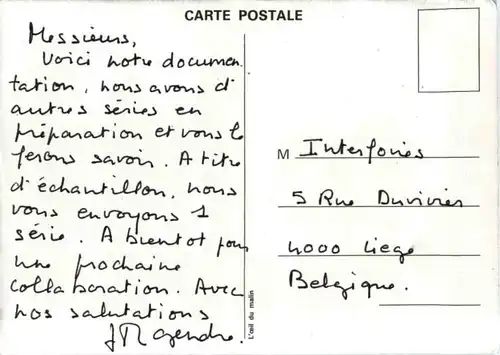 CARTE POSTALE
Messieurs,
Voici notre documen
tation, nous avons d'
autres séries en
préparation et vous le
ferons savoir. A titre
d'échantillon, nous
vous envoyons 1
série. A bientot pour
une prochaine
collaboration. Avec
nos salutations
M Interfories
5 Rue Duvivier
4000 Liege
Belgique.
L'œil du malin